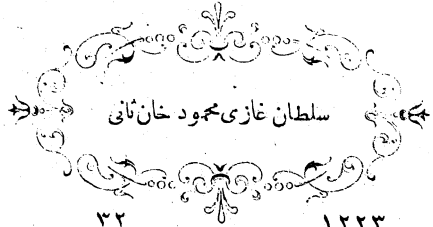 سلطان غازی محمود خان ثانی
١٢٢٣ ٣٢